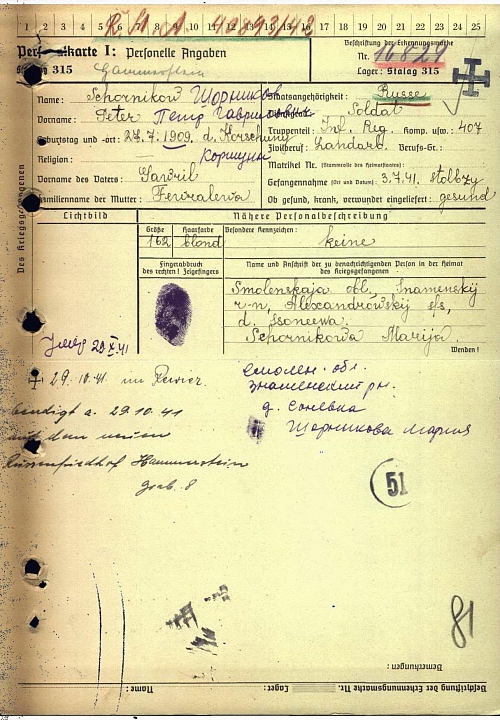 R.H.A. 40893/42
1 2 3 4 5 6 7 8 9 10 11 12 13 14 15 16 17 18 19 20 21 22 23 24 25
Personalkarte I: Personelle Angaben
Beschriftung der Erkennungsmarke
Nr. 16829
Stalag 315
Lager: Stalag 315
Des Kriegsgefangenen
Name: Schornikow Щорников
Staatsangehörigkeit: Russe
Vorname: Peter Петр Гаврилович
Dienstgrad: Soldat
Truppenteil: Inf. Reg. Komp. usw.: 407
Geburtstag und -ort: 27.7.1909. d. Korschuny
Коршуны
Zivilberuf: Landarb. Berufs-Gr.:
Religion:
Matrikel Nr. (Stammrolle des Heimatstaates)
Vorname des Vaters: Gawril
Gefangennahme (Ort und Datum): 3.7.41. Stolbzy
Familienname der Mutter:
Ob gesund, krank, verwundet eingeliefert: gesund
Lichtbild
Nähere Personalbeschreibung
Größe Haarfarbe Besondere Kennzeichen:
162 blond keine
Fingerabdruck
des rechten! Zeigefingers
Name und Anschrift der zu benachrichtigenden Person in der Heimat
des Kriegsgefangenen
Smolenskaja obl., Snamenskij
r-n, Alexandrowskij s/s,
d.
Schornikowa Marija.
Wenden!
29.10.41 im Revier.
beerdigt a. 29.10.41
auf dem neuen
Russenfriedhof Hammerstein
grab. 8
Смолен. обл.
Знаменский рн.
д. Соневка
Щорникова Мария
51
81
Bemerkungen:
Beschriftung der Erkennungsmarke Nr. Lager: Name: